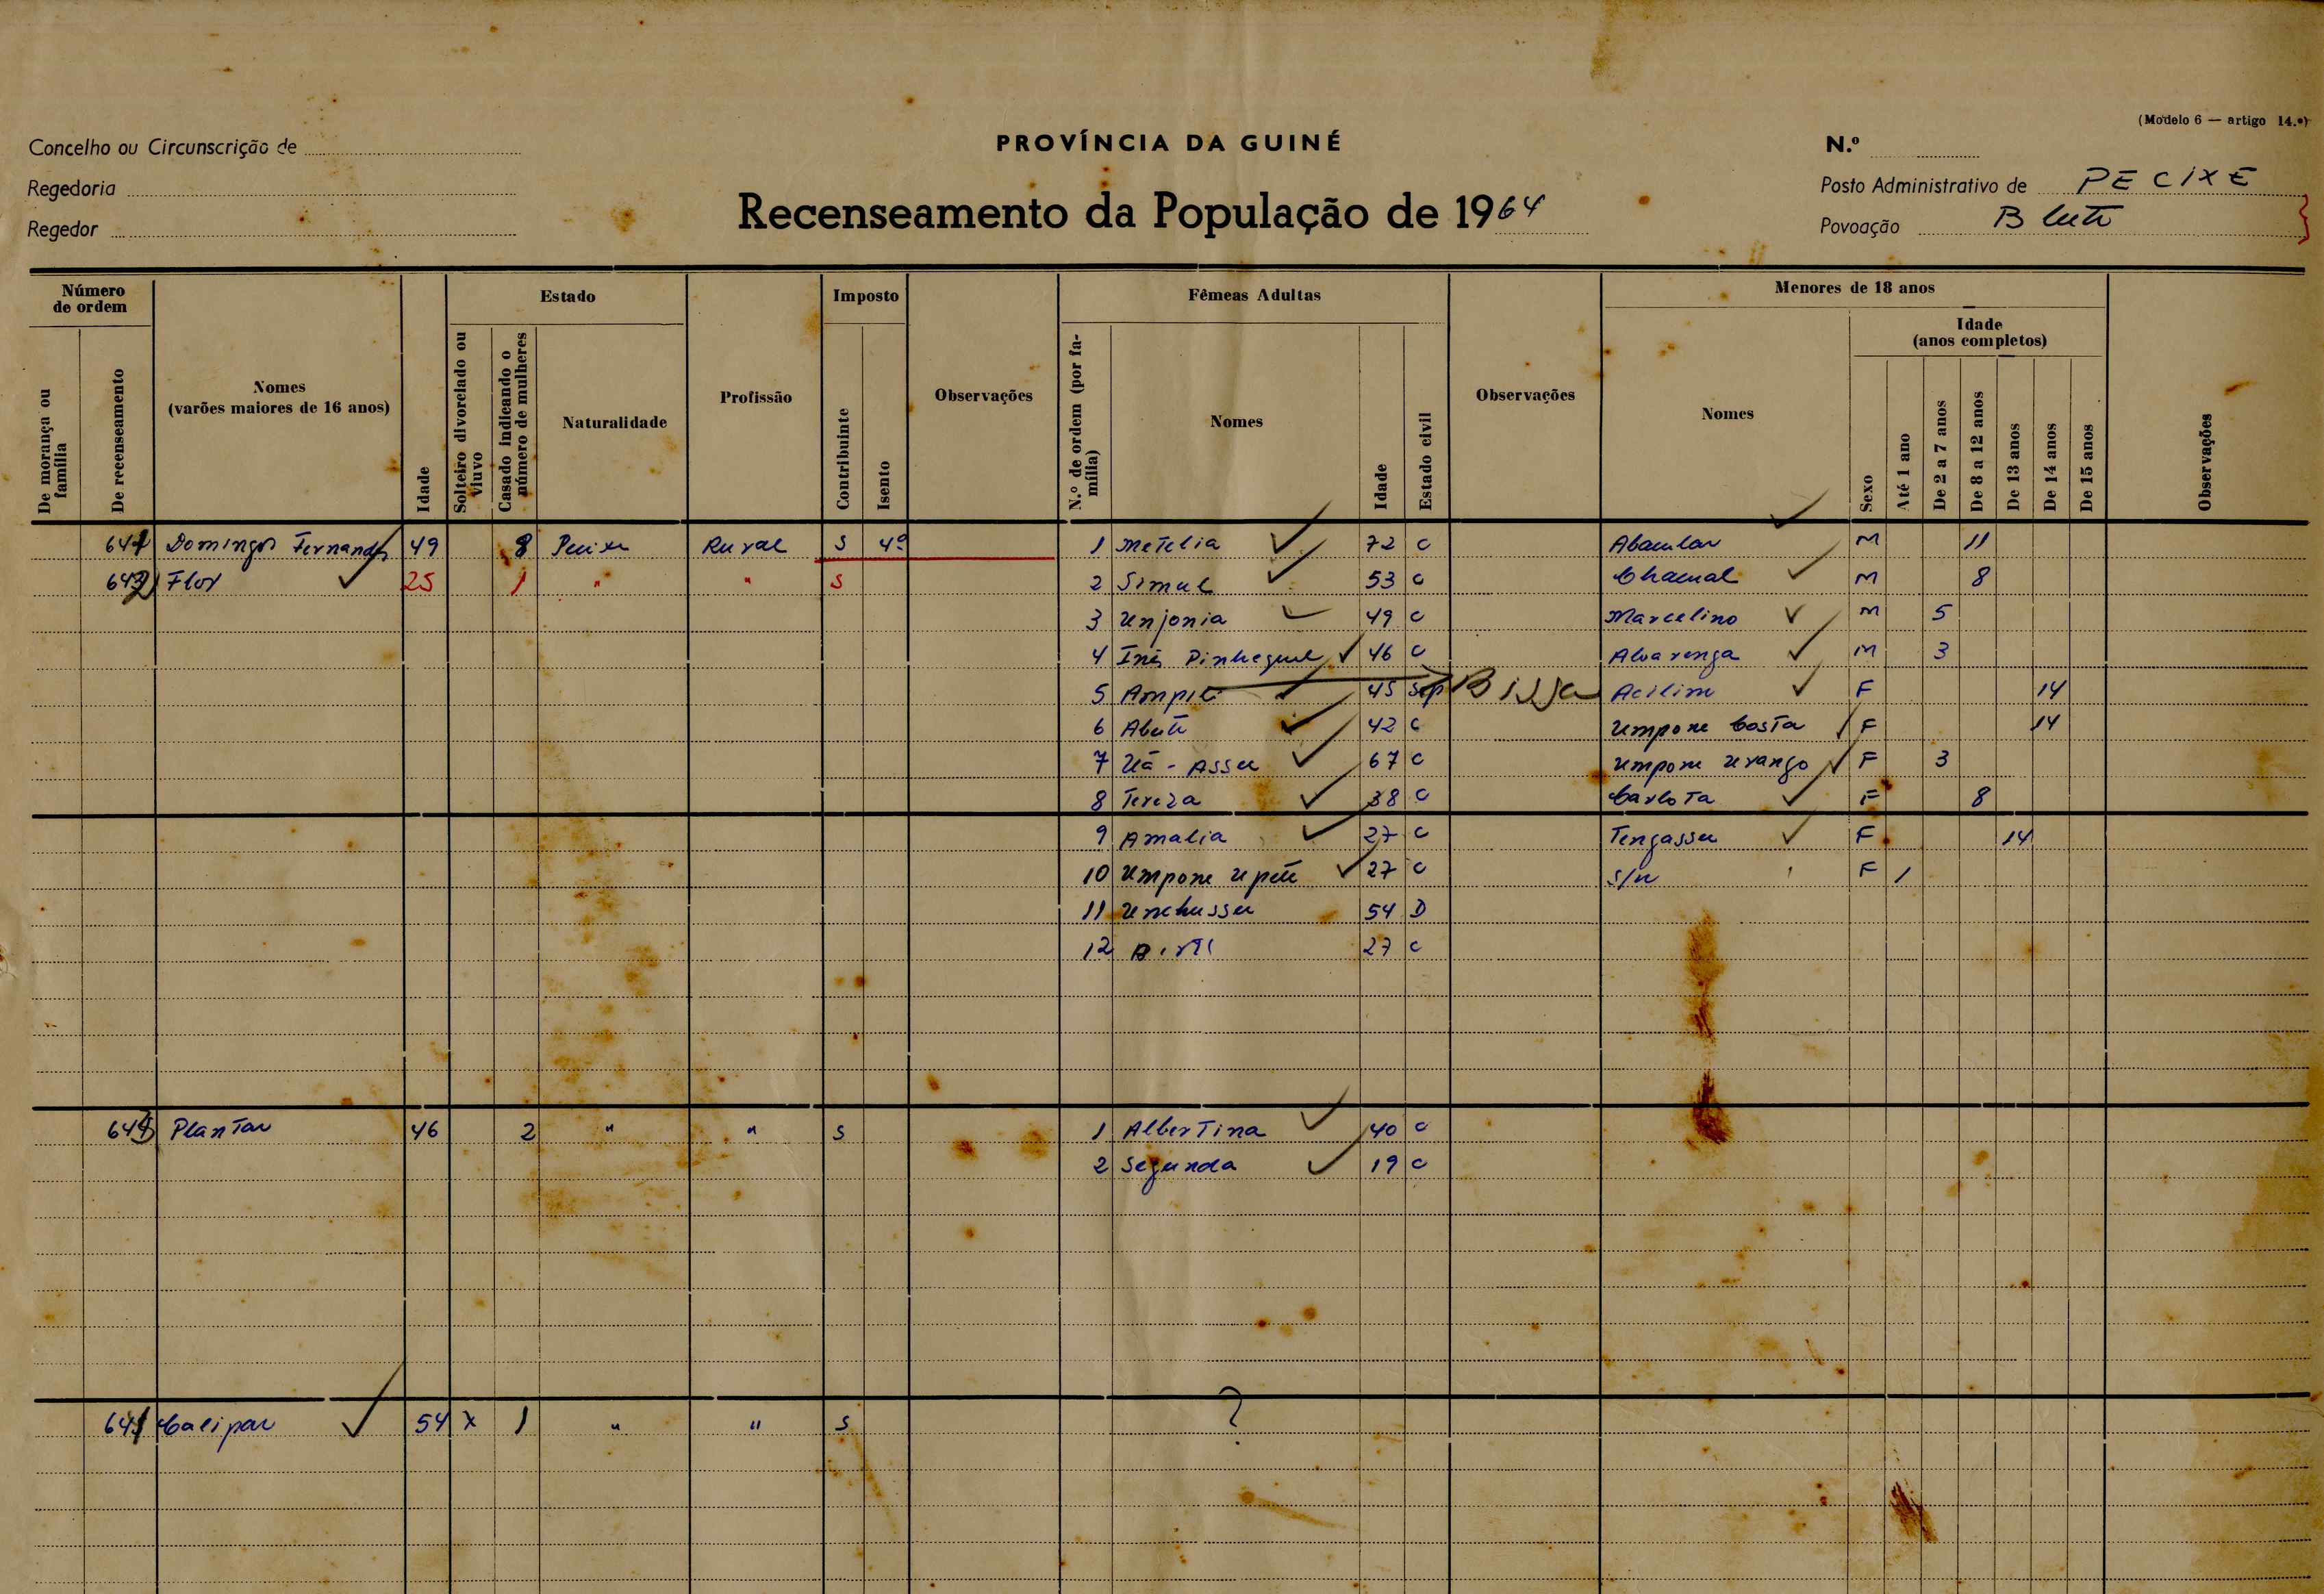 (Modelo 6 — artigo 14.º)
Concelho ou Circunscrição de
PROVÍNCIA DA GUINÉ
N.º
Regedoria
Posto Administrativo de PECIXE
Recenseamento da População de 1964
Regedor
Povoação
Número de ordem
De morança ou família
De recenseamento
Nomes
(varões maiores de 16 anos)
Idade
Estado
Solteiro divorciado ou viuvo
Casado indicando o número de mulheres
Naturalidade
Profissão
Imposto
Contribuinte
Isento
Observações
Fêmeas Adultas
N.º de ordem (por família)
Nomes
Idade
Estado civil
Observações
Menores de 18 anos
Nomes
Sexo
Idade
(anos completos)
Até 1 ano
De 2 a 7 anos
De 8 a 12 anos
De 13 anos
De 14 anos
De 15 anos
Observações
Domingos Fernandes 49 8 Rural S 1 Metelia 72 C M 11
Flor 25 1 " " S 2 53 C M 8
3 Unjonia 49 C Marcelino M 5
4 Inês 46 C Alvarenga M 3
5 45 Sep F 14
6 42 C Umpone Costa F 14
7 67 C Umpone F 3
8 Tereza 38 C Carlota F 8
9 Amalia 27 C Tengassu F 14
10 Umpone 27 C S/n F 1
11 Unchussu 54 D
12 27 C
46 2 " " S 1 Albertina 40 C
2 Segunda 19 C
54 x 1 " " S ?